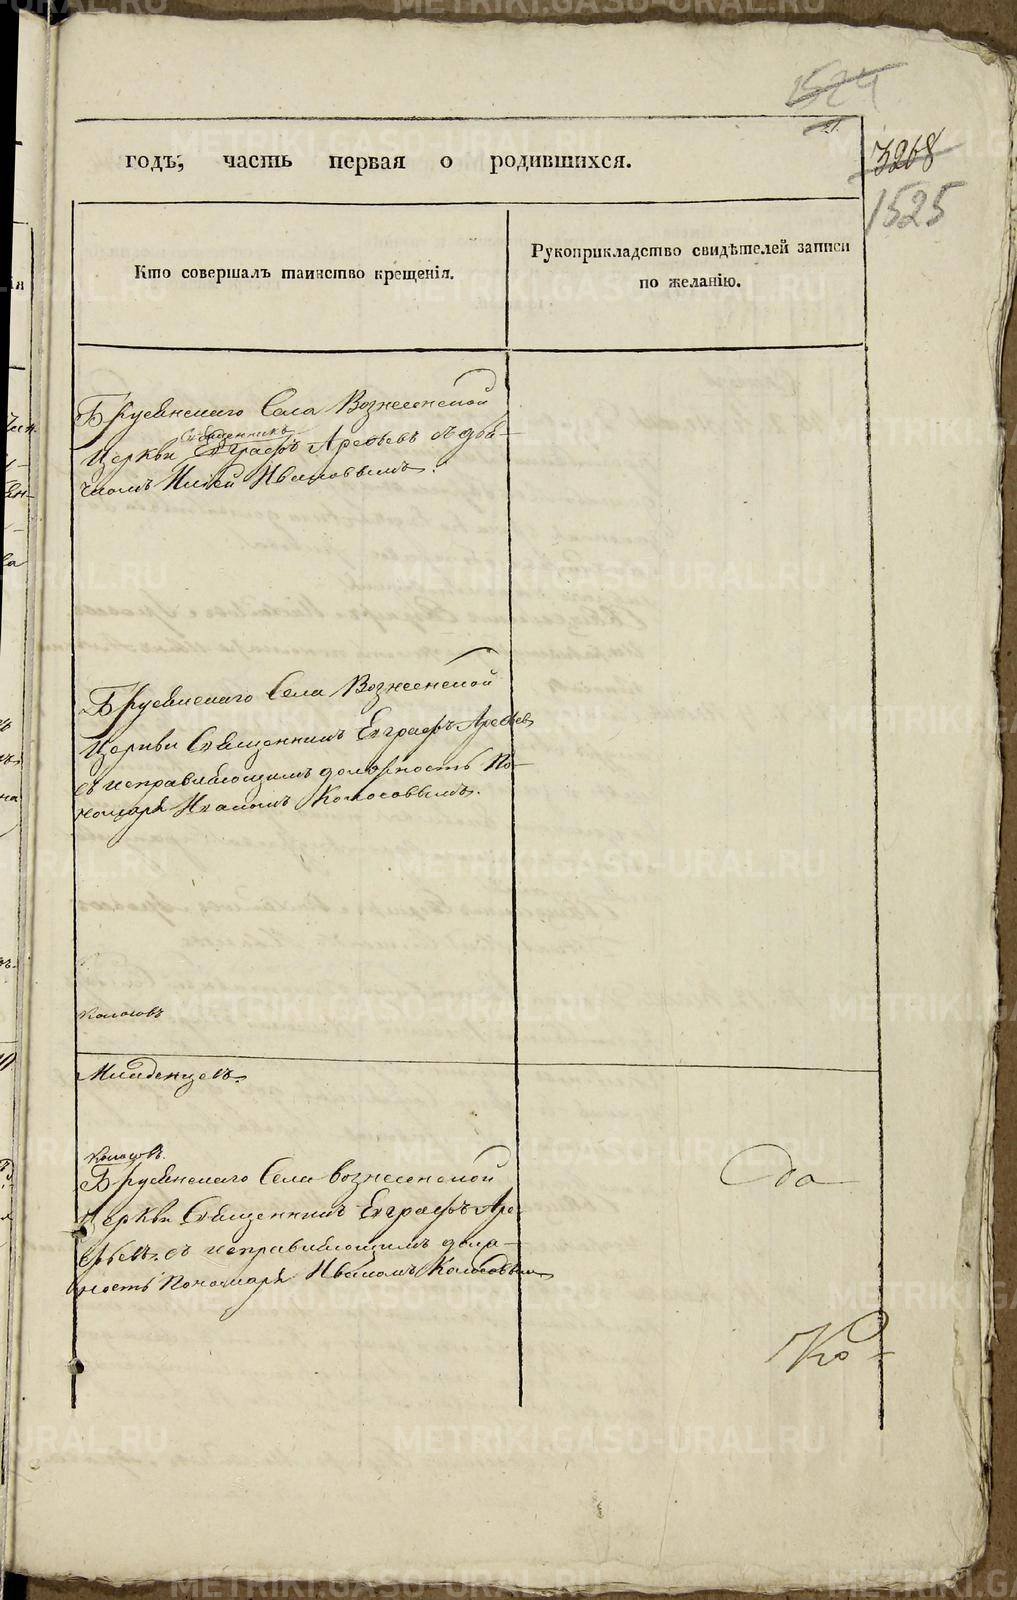 1524
годъ, часть первая о родившихся.
3268
1525
Кто совершалъ таинство крещенія.
Рукоприкладство свидѣтелей записи
по желанію.
Брусянскаго Села Вознесенской
Священникъ
Церкви Евграфъ Арефьевъ съ дья-
чкомъ Ильей Ивановымъ.
Брусянскаго Села Вознесенской
Церкви Священникъ Евграфъ Арефьевъ
съ исправляющимъ должность По-
номаря Иваномъ Колосовымъ.
Колосовъ
Младенцевъ.
Колосовъ.
Брусянскаго Села Вознесенской
Церкви Священникъ Евграфъ Аре-
фьевъ съ исправляющимъ долж-
ность Пономаря Иваномъ Колосовым
Ко-
METRIKI.GASO-URAL.RU